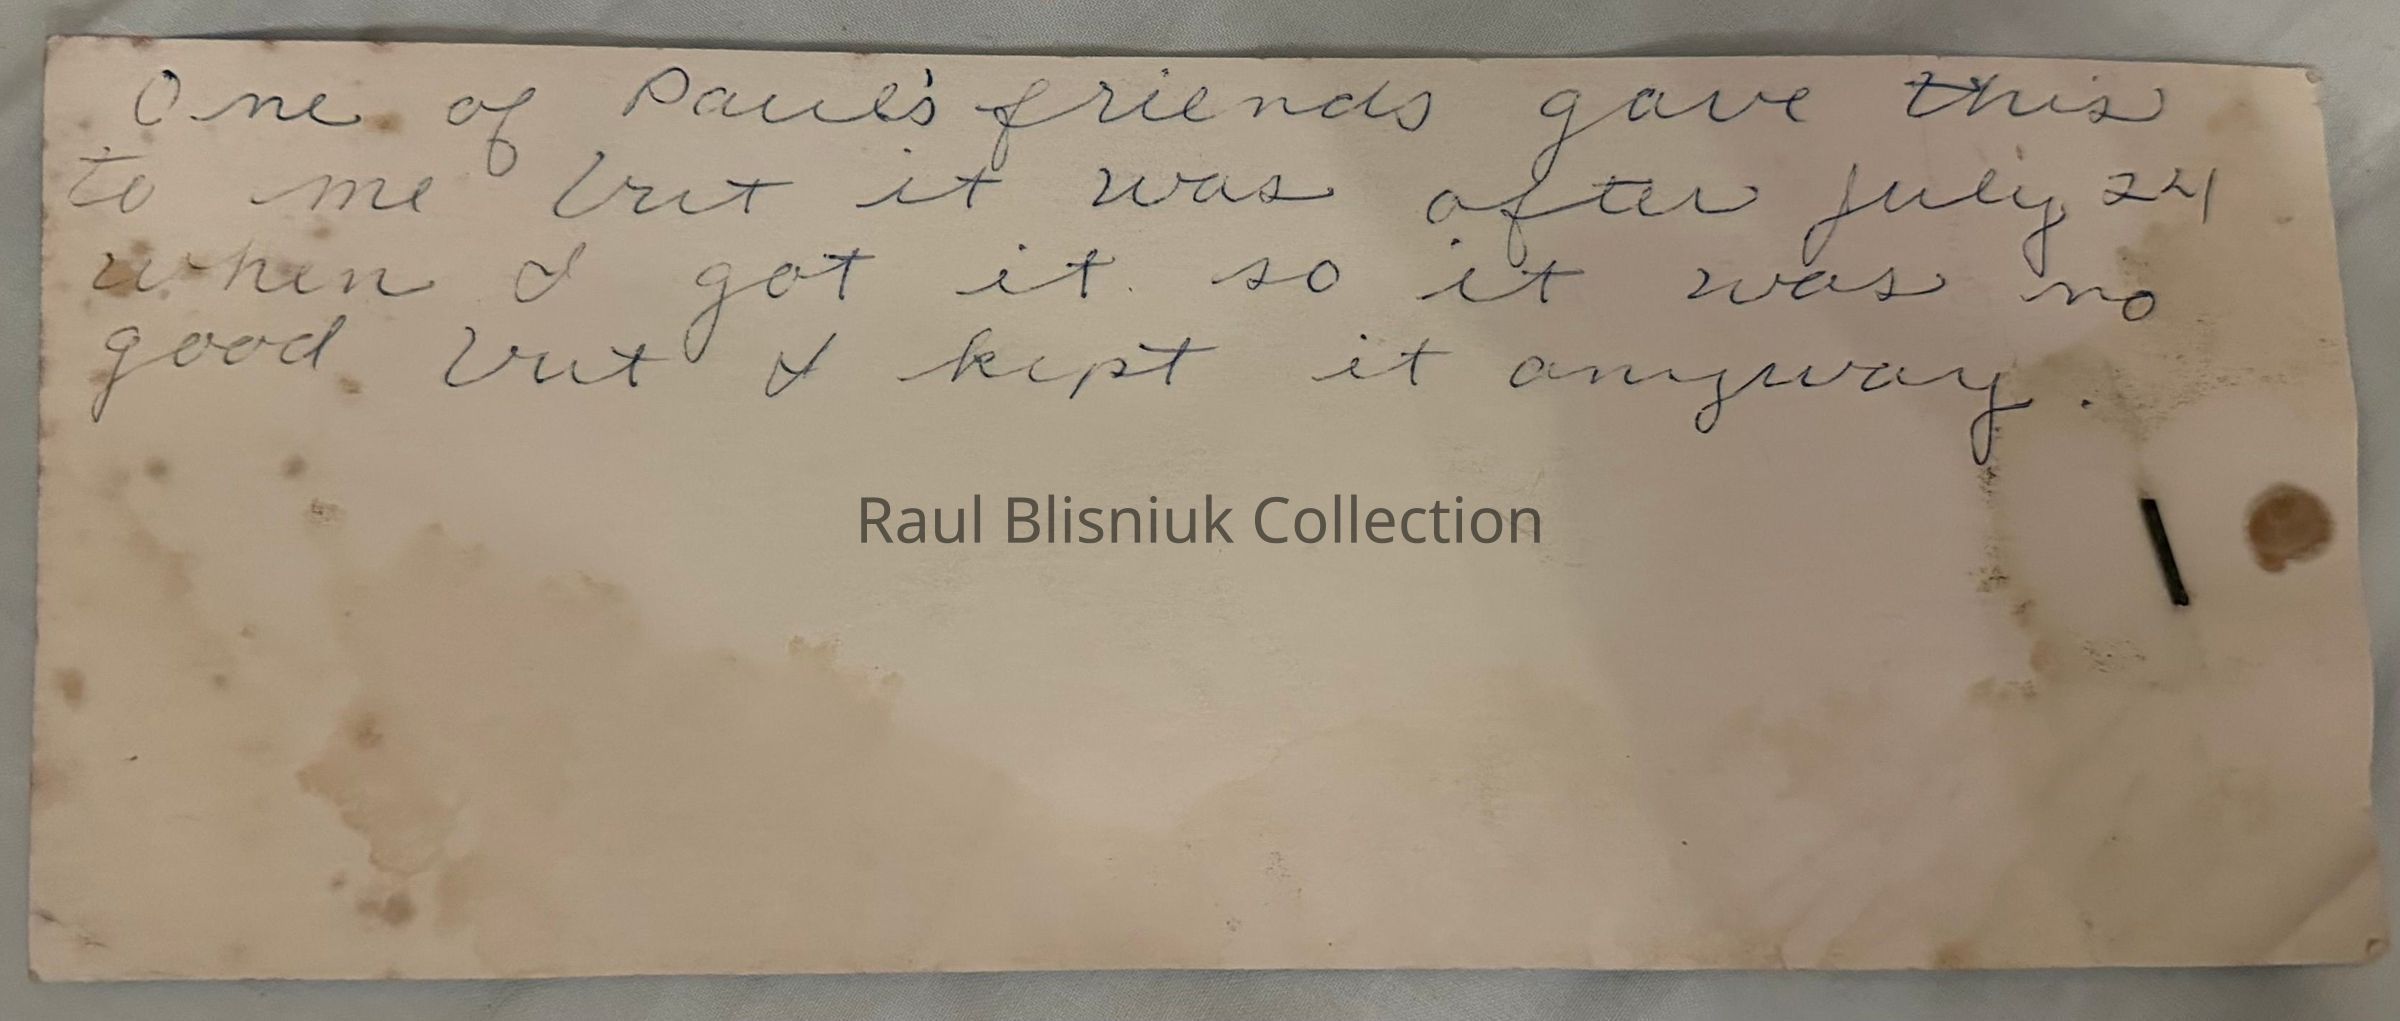 One of Paul's friends gave this
to me but it was after July 24
when I got it so it was no
good but I kept it anyway.
Raul Blisniuk Collection